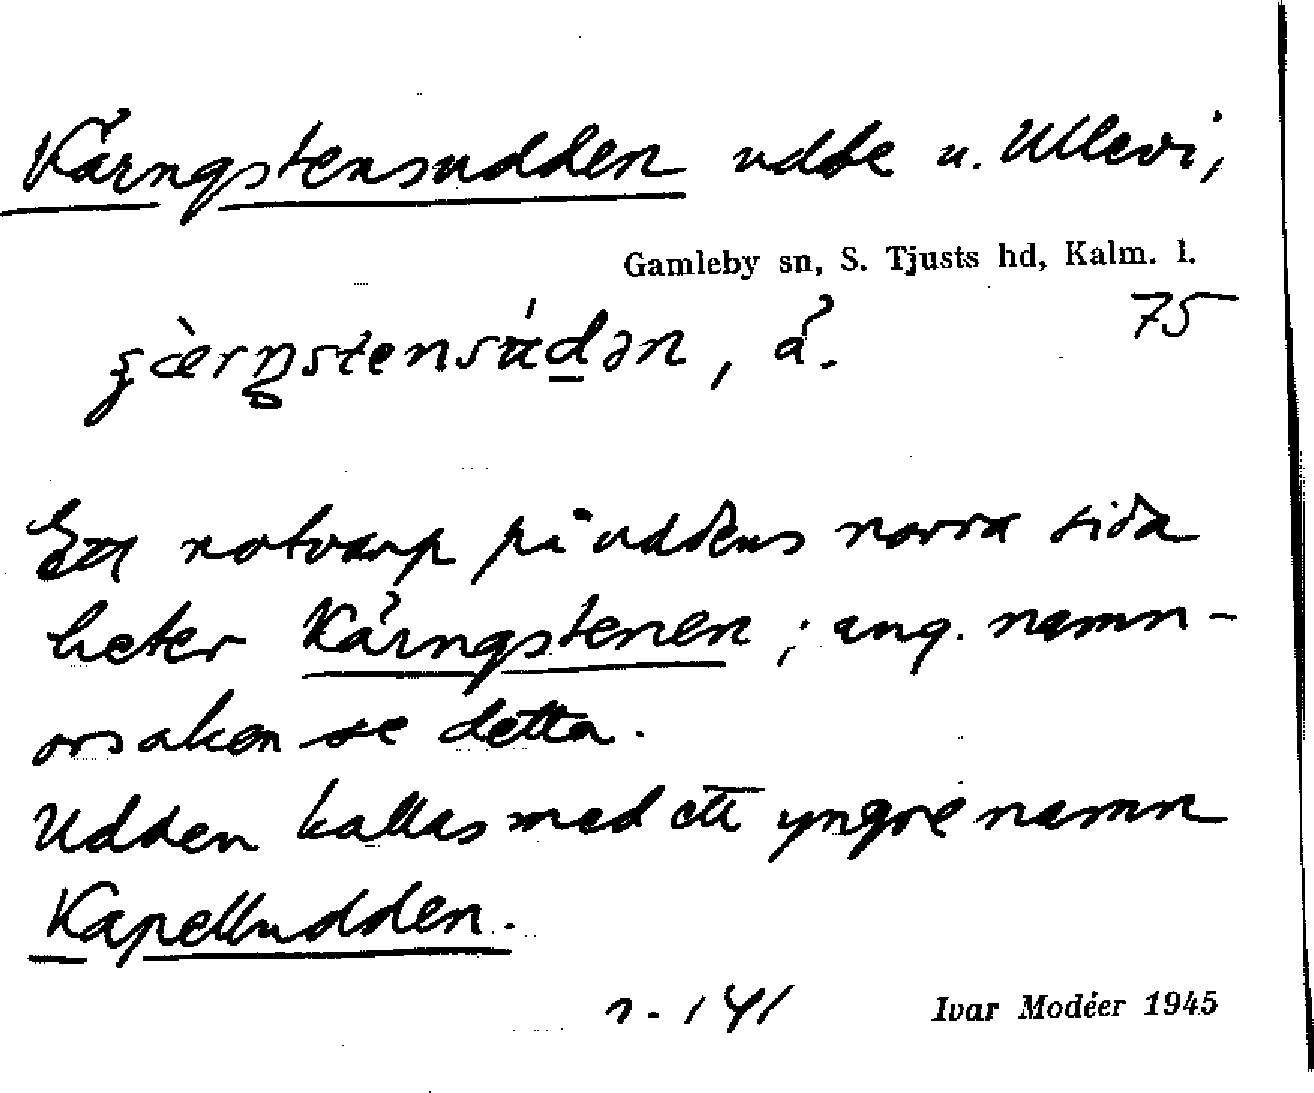 Kärngstensudden udde u. Ullevi,
Gamleby sn, S. Tjusts hd, Kalm. l.
75
Ett notvarp på uddens norra sida
heter Kärngstenen; ang. namn-
orsaken se detta.
Udden kallas med ett yngre namn
Kapelludden.
141
Ivar Modéer 1945